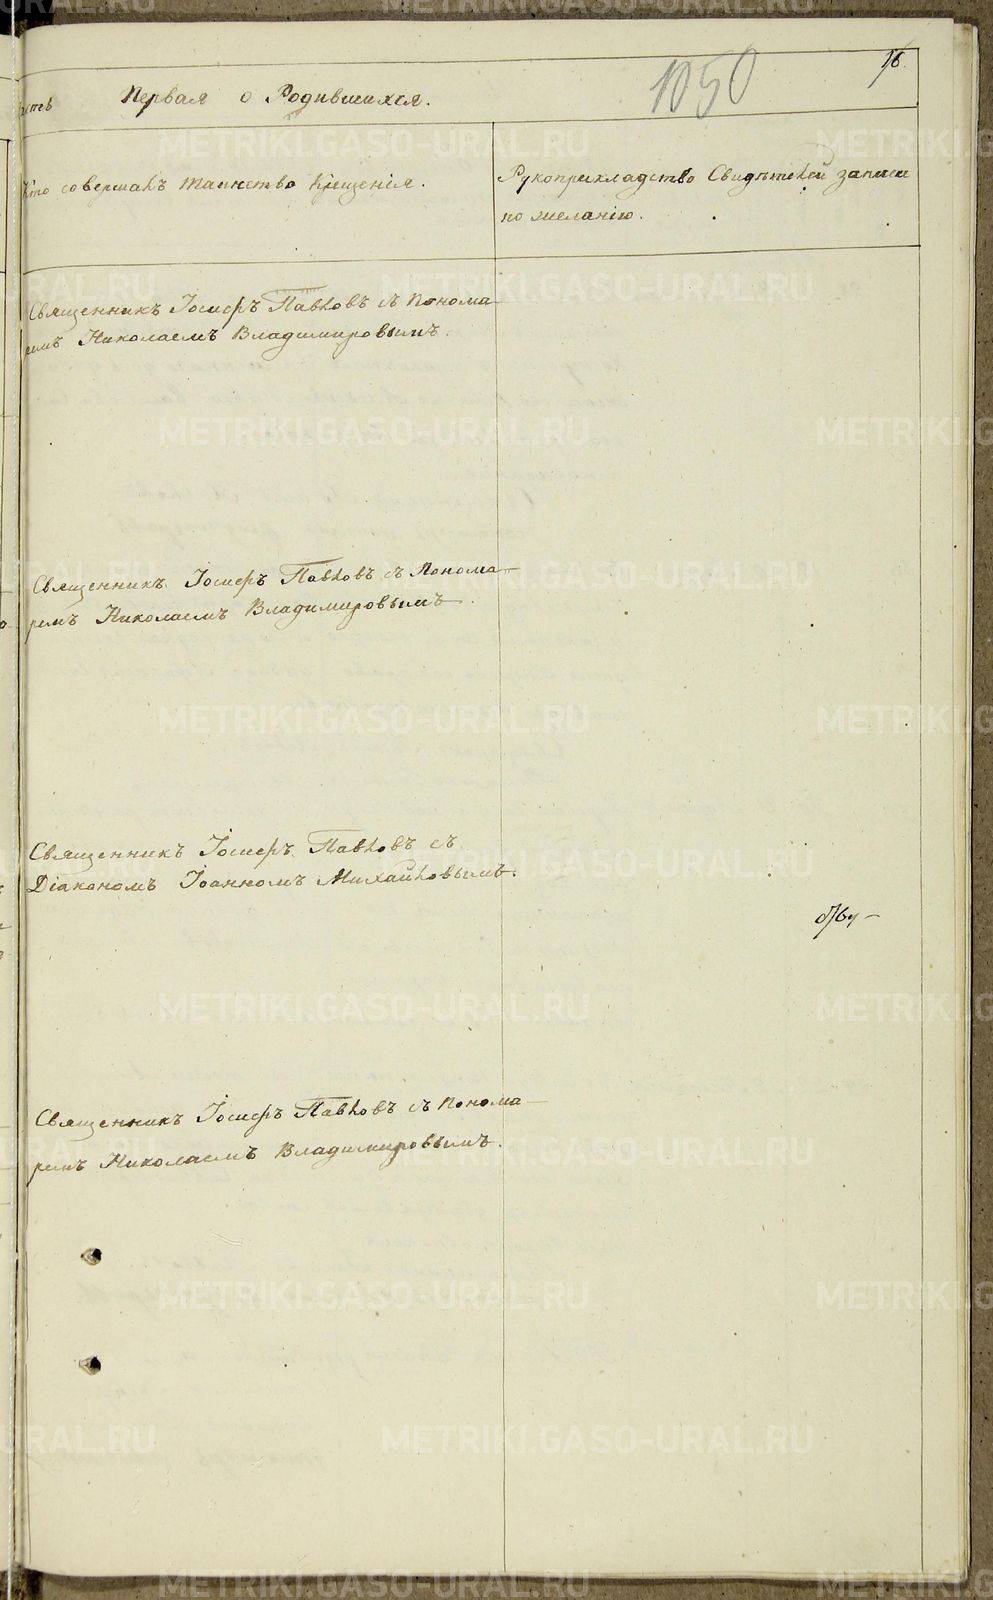 1050
16
Первая о Родившихся.
Кто совершалъ таинство Крещенія.
Рукоприкладство Свидѣтелей записи
по желанію.
Священникъ Іосифъ Павловъ съ Понома-
ремъ Николаемъ Владимировымъ.
Священникъ Іосифъ Павловъ съ Понома-
ремъ Николаемъ Владимировымъ.
Священникъ Іосифъ Павловъ съ
Діакономъ Іоанномъ Михайловымъ.
Священникъ Іосифъ Павловъ съ Понома-
ремъ Николаемъ Владимировымъ.
METRIKI.GASO-URAL.RU